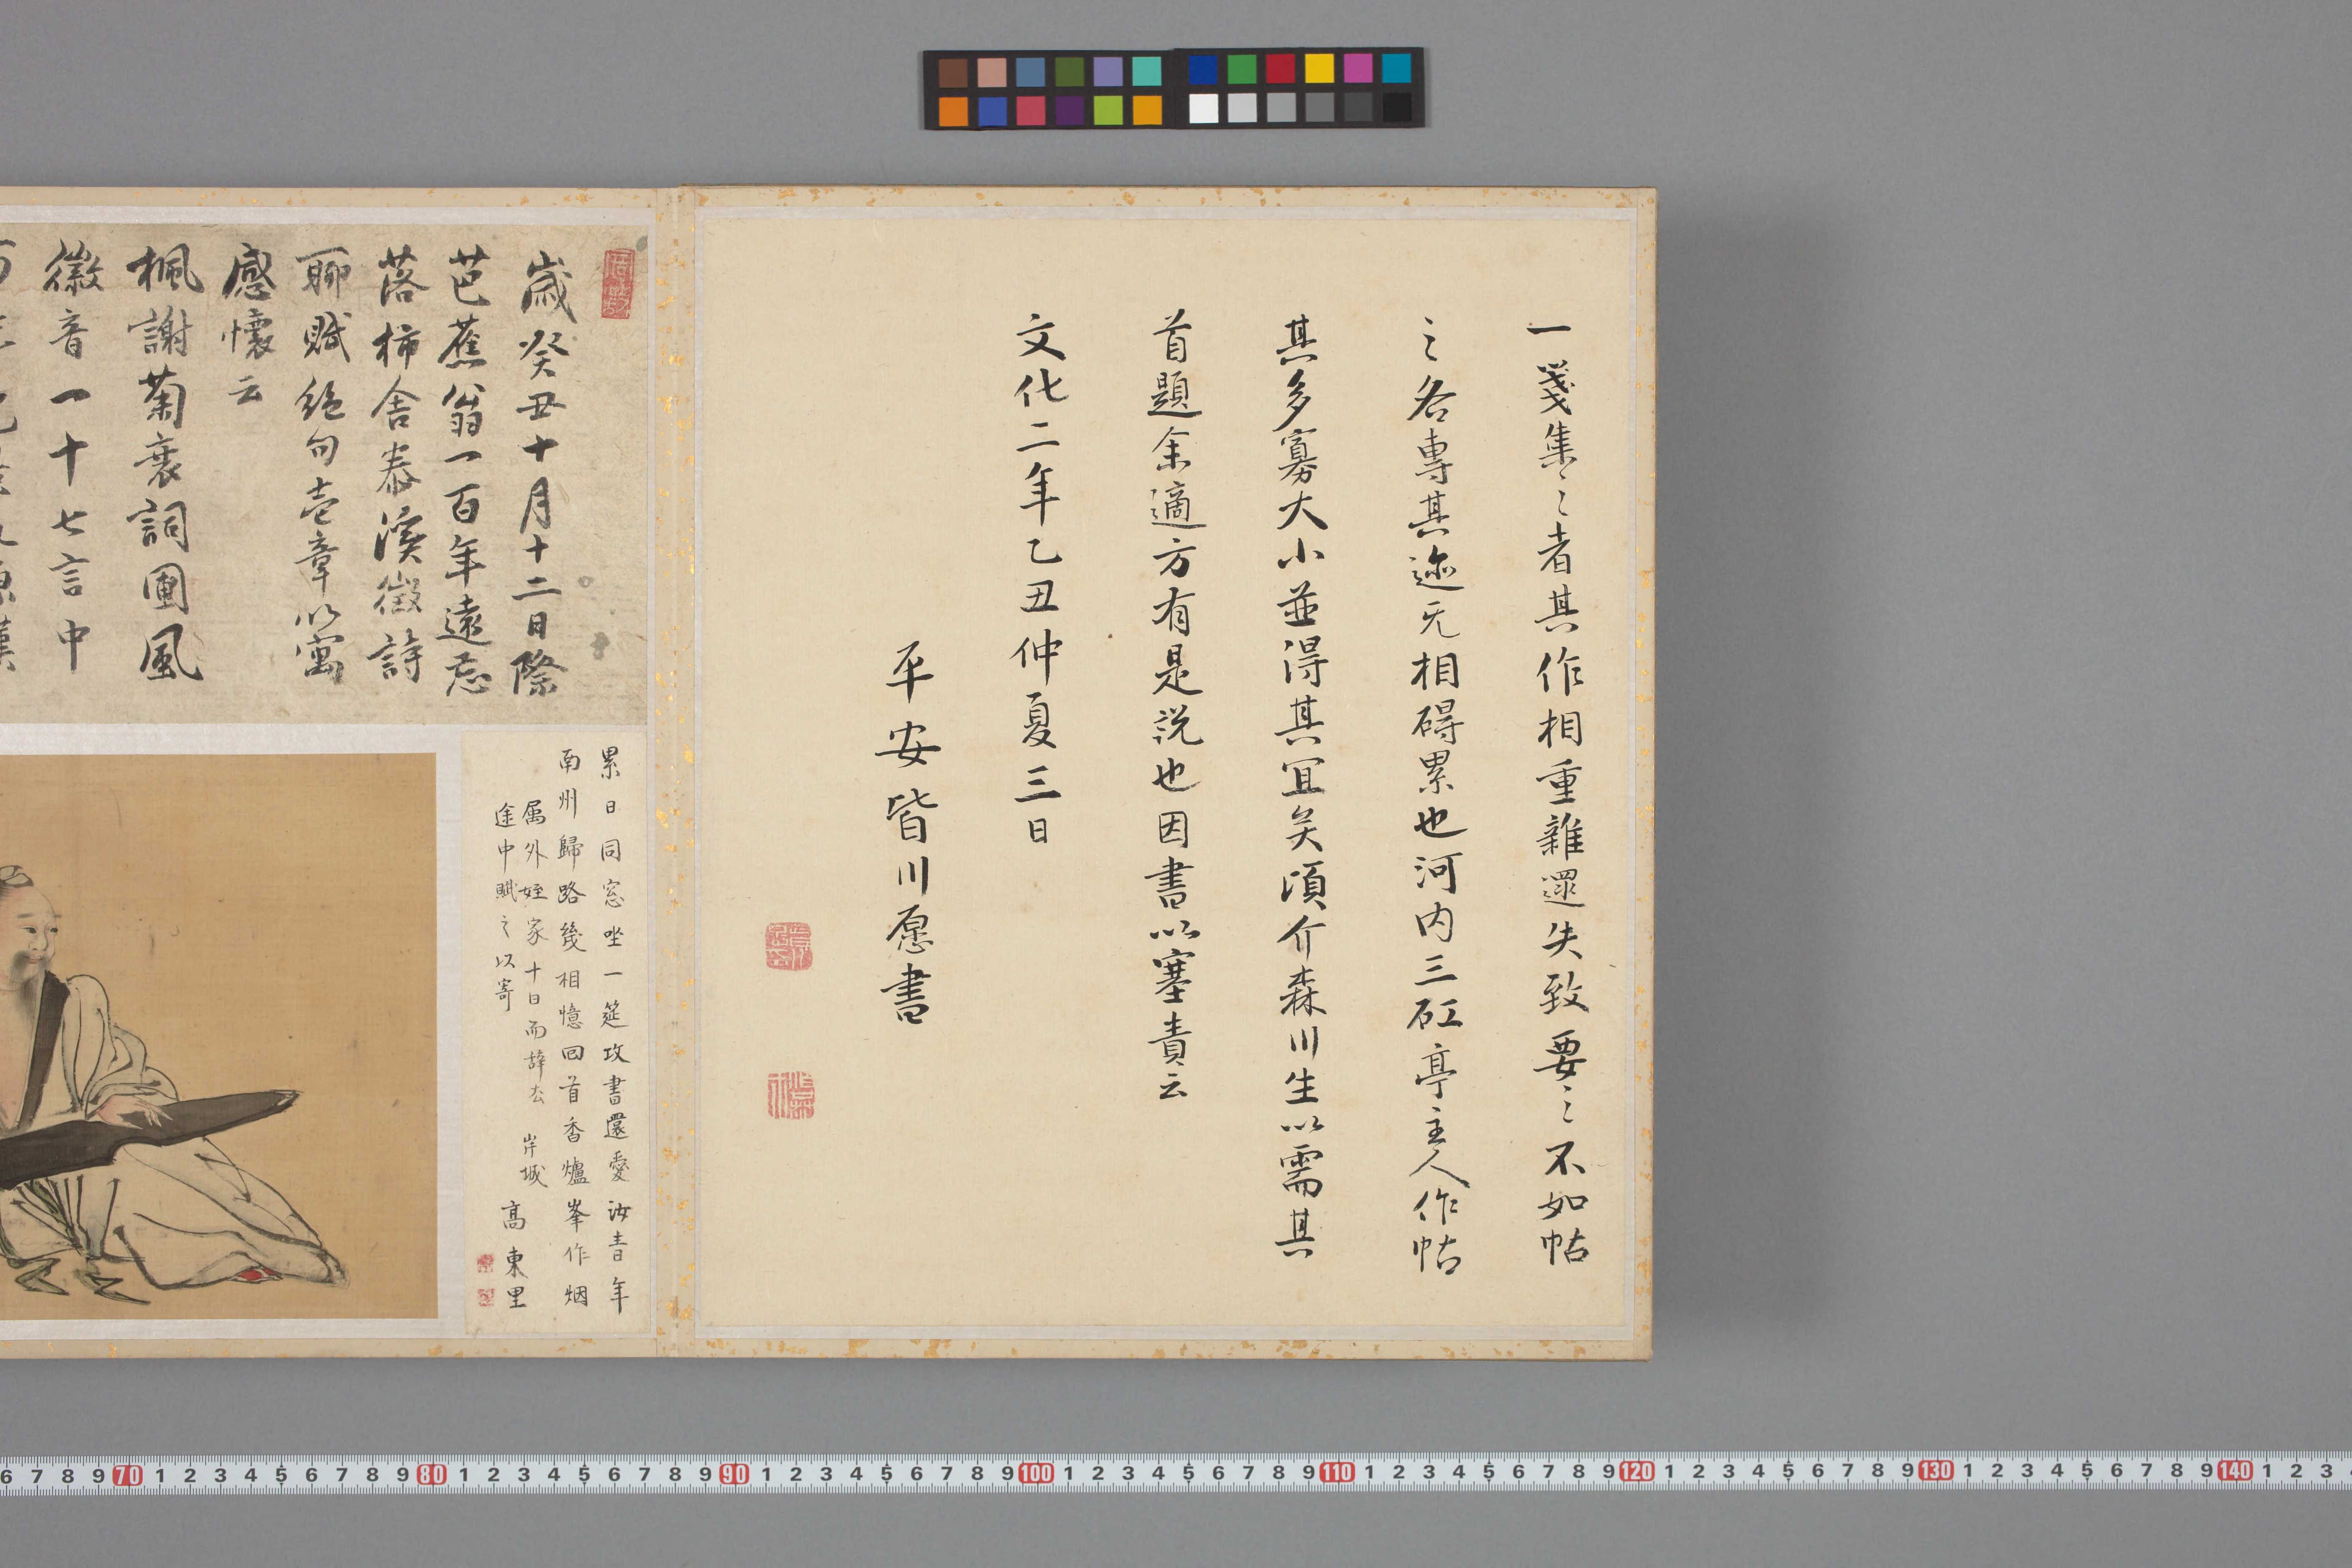 一箋集〻者其作相重雜還失致要〻不如帖
〻各專其迹无相碍累也河内三矼亭主人作帖
其多寡大小並得其宜矣頃介森川生以需其
首題余適方有是説也因書以塞責云
文化二年乙丑仲夏三日
平安皆川愿書
歳癸丑十月十二日際
芭蕉翁一百年遠忌
落柿舎泰溪徴詩
聊賦絶句壱章以寓
感懐云
楓謝菊衰詞園風
徽音一十七言中
累日同窓坐一筵攻書還愛汝青年
南州歸路幾相憶回首香爐峯作烟
属外姪家十日而辞去 岸城
途中賦之以寄 高東里
6 7 8 9 70 1 2 3 4 5 6 7 8 9 80 1 2 3 4 5 6 7 8 9 90 1 2 3 4 5 6 7 8 9 100 1 2 3 4 5 6 7 8 9 110 1 2 3 4 5 6 7 8 9 120 1 2 3 4 5 6 7 8 9 130 1 2 3 4 5 6 7 8 9 140 1 2 3